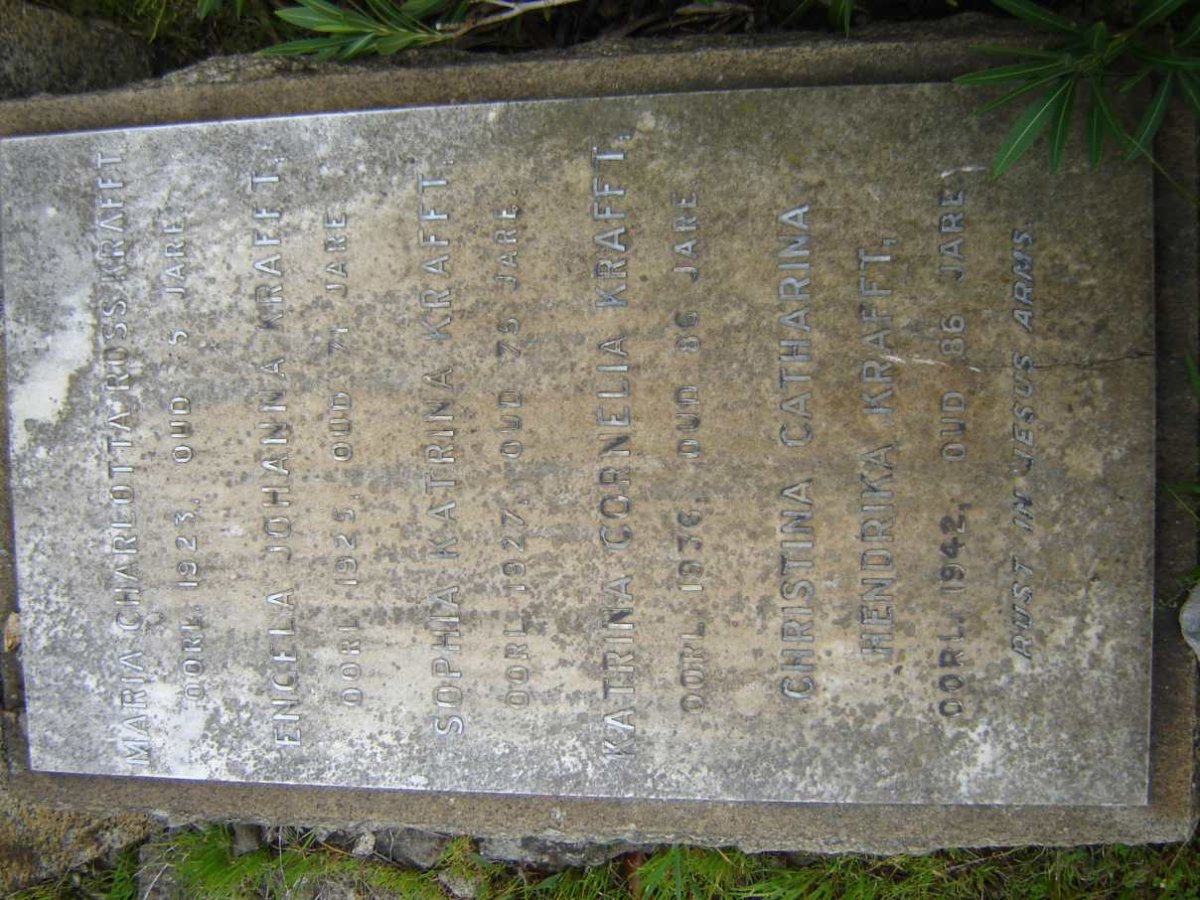 MARIA CHARLOTTA ROSS KRAFFT.
OORL. 1923. OUD 5 JARE
ENGELA JOHANNA KRAFFT.
OORL. 1925. OUD 71 JARE
SOPHIA KATRINA KRAFFT.
OORL. 1927. OUD 75 JARE.
KATRINA CORNELIA KRAFFT.
OORL. OUD 86 JARE
CHRISTINA CATHARINA
HENDRIKA KRAFFT,
OORL. 1942, OUD 86 JARE
RUST IN JESUS ARMS